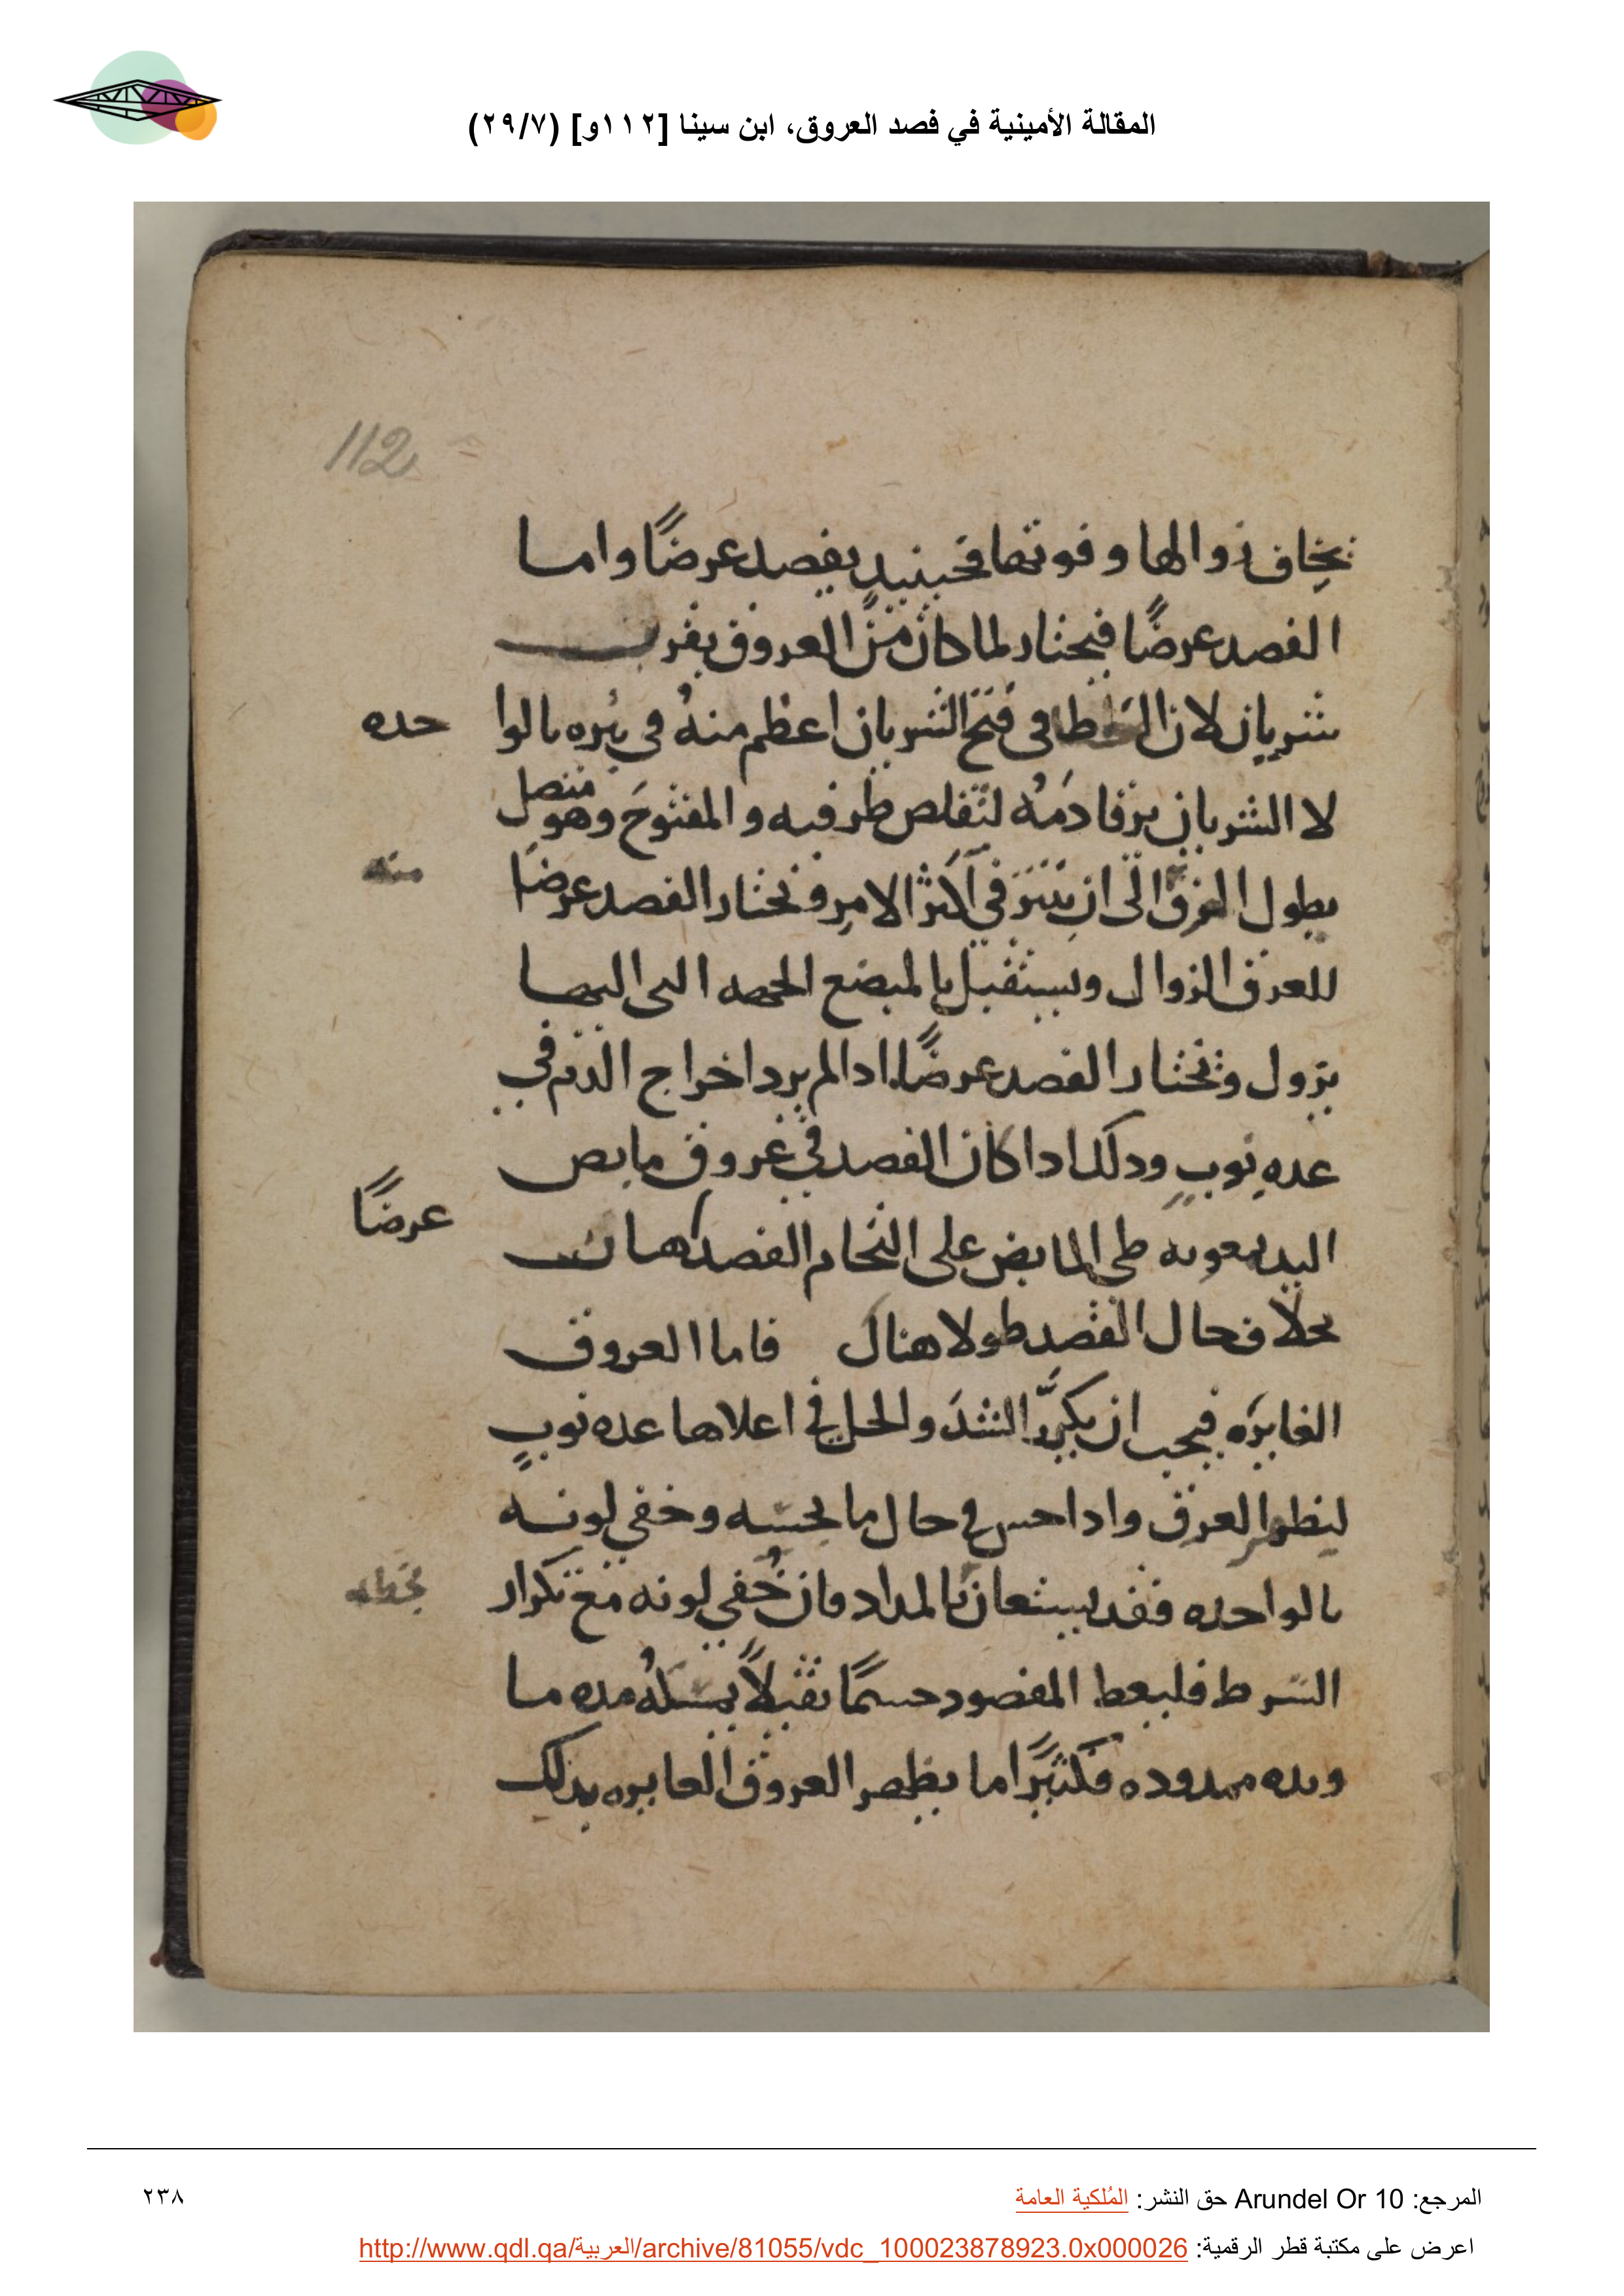 المقالة الأمينية في فصد العروق، ابن سينا [١١٢و] (٢٩/٧)
112
يخاف زوالها وفوتها فحينيد يفصد عرضًا واما
الفصد عرضًا فيختار لما كان من العروق بقرب
شريان لان الخطا في فتح الشريان اعظم منهُ في بتره بالوا
حده
لا الشريان يرقا دمُه لتقلص طرفيه والمفتوح وهو متصل
يطول الى ان في اكثر الامر وتختار الفصد عرضا
منه
للعرق الزوال ويستقبل بالمبضع الجهه التي اليها
يزول وتختار الفصد عرضًا ادا لم يرد اخراج الدم في
عده نوبٍ ودلك ادا كان الفصد في عروق مابض
اليد طى المابض على التحام الفصد
عرضًا
بخلاف حال الفصد طولا هناك فاما العروق
الغايره فيجب ان يكرَّر الشد والحل في اعلاها عده نوبٍ
ليظهر العرق وادا احس في حال ما بحسه وخفي لونه
بالواحده فقد يستعان بالمداد فان خُفي لونه مع تكرار
السرط فليعط المفصود جسمًا ثقيلاً يمسكهُ مده ما
ويده ممدوده فكثيرًا ما يظهر العروق الغايره بدلك
المرجع: Arundel Or 10 حق النشر: المُلكية العامة
٢٣٨
اعرض على مكتبة قطر الرقمية: http://www.qdl.qa/العربية/archive/81055/vdc_100023878923.0x000026